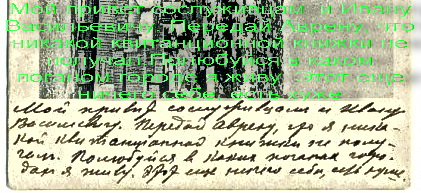 Мой привет сослуживцам и Ивану
Васильевичу. Передай Аврену, что
никакой квитанционной книжки не
получал. Полюбуйся в каком
поганом городе я живу. Этот еще
ничего себе, есть хуже.
Мой привет сослуживцам и Ивану
Васильевичу. Передай Аврену, что я ника-
кой квитанционной книжки не полу-
чал. Полюбуйся в каких поганых горо-
дах я живу. Этот еще ничего себе, есть хуже.